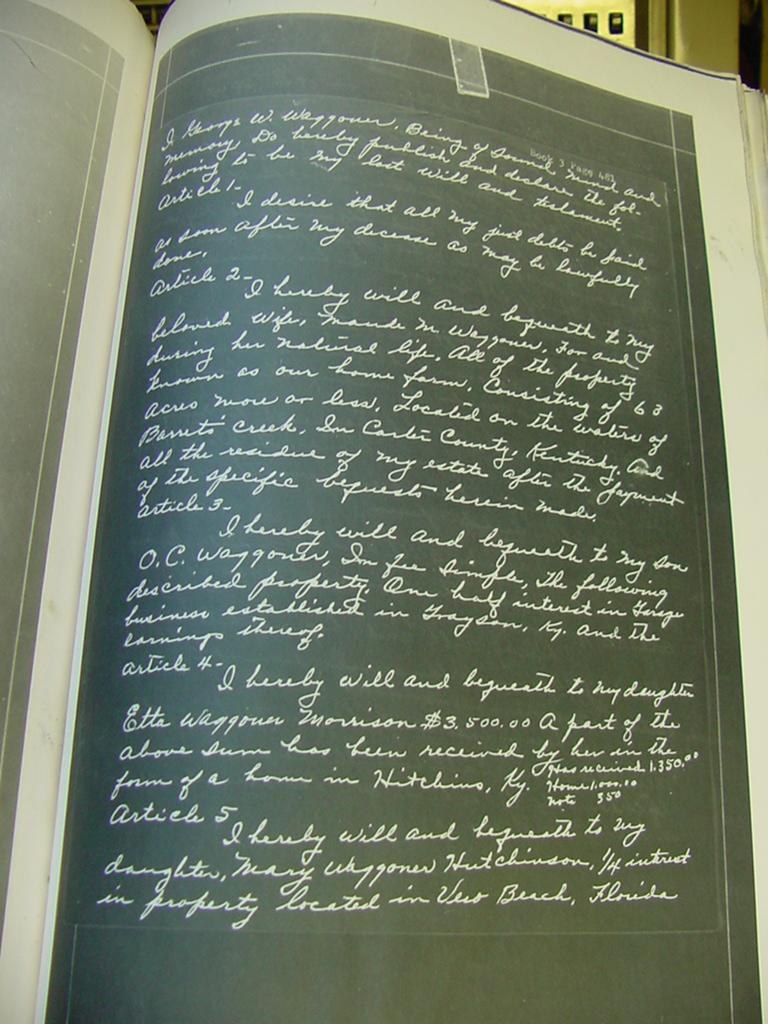 Book 3 Page 481
I George W. Waggoner, Being of Sound Mind and
memory, Do hereby publish and declare the fol-
lowing to be my last will and testament.
Article 1-
I desire that all my just debts be paid
as soon after my decease as may be lawfully
done.
Article 2-
I hereby will and bequeath to my
beloved wife, Maude M. Waggoner, For and
during her natural life, All of the property
known as our home farm, Consisting of 63
acres more or less, Located on the waters of
Barrets Creek, In Carter County, Kentucky, And
all the residue of my estate after the payment
of the specific bequests herein made.
Article 3-
I hereby will and bequeath to my son
O.C. Waggoner, In fee simple, The following
described property, One half interest in Garage
business established in Grayson, Ky. and the
earnings thereof.
Article 4-
I hereby will and bequeath to my daughter
Etta Waggoner Morrison $3,500.00 A part of the
above sum has been received by her in the
form of a home in Hitchins, Ky.
Has received 1,350.00
Home 1,000.00
note 350
Article 5
I hereby will and bequeath to my
daughter, Mary Waggoner Hutchinson, 1/4 interest
in property located in Vero Beach, Florida